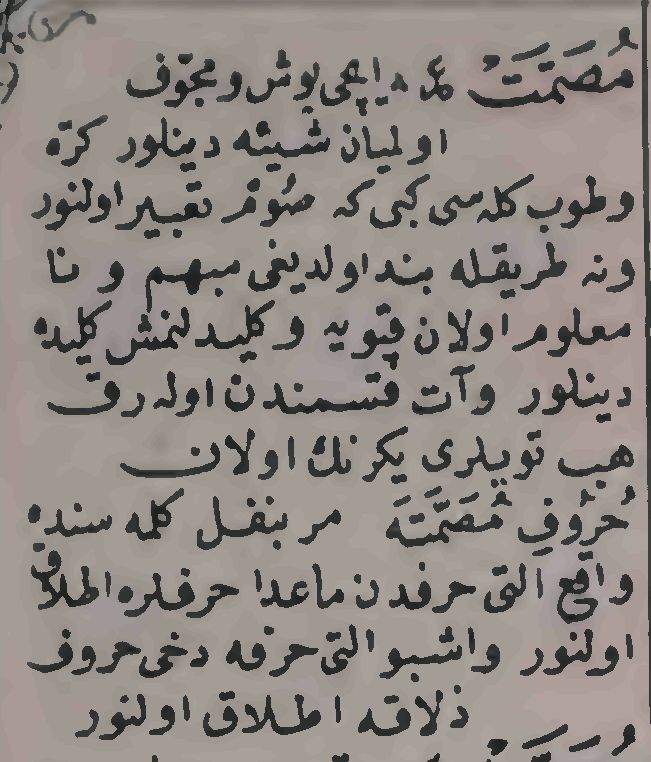 مُصَمَّتَتْ ایچی بوش و مجوّف
اولمیان شیئه دینلور کرّه
وطوب کله سی کبی که صُوَمْ تعبیر اولنور
ونه طریقله بند اولدیغی مبهم و نا
معلوم اولان قپویه و کلیدلنمش کلیده
دینلور وآت قسمندن اوله رق
هب تویلری یکرنك اولان
حُرُوفِ مُصَمَّتَه مر بنفل کلمه سنده
واقع التی حرفدن ماعدا حرفلره اطلاق
اولنور واشبو التی حرفه دخی حروف
ذلاقه اطلاق اولنور